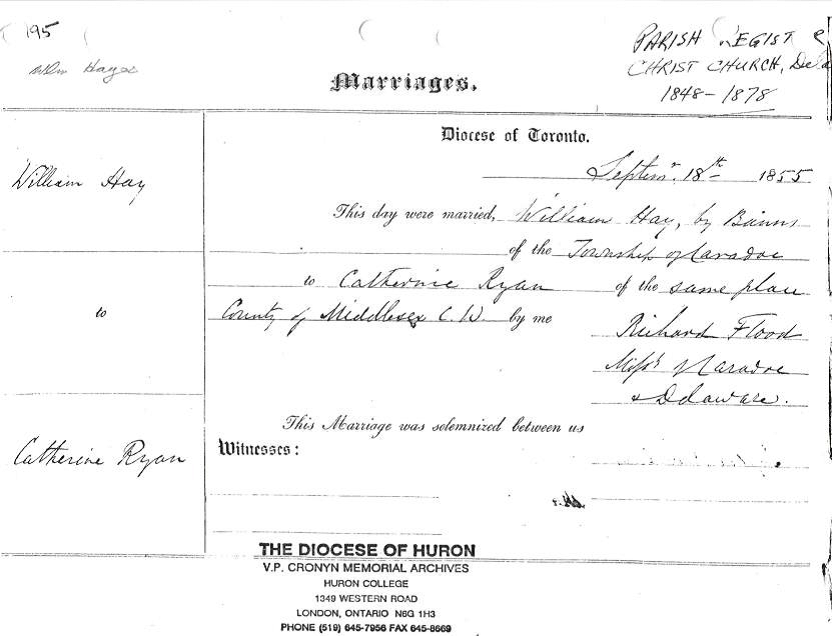 195
Wm Hays
PARISH REGISTE
CHRIST CHURCH, Dela
1848-1878
Marriages.
Diocese of Toronto.
Septemr. 18th 1855
William Hay
This day were married, William Hay, by Banns
of the Township of Caradoc
to Catherine Ryan of the same place
to
County of Middlesex C.W. by me
Richard Flood
Missy of Caradoc
& Delaware.
This Marriage was solemnized between us
Catherine Ryan
Witnesses:
THE DIOCESE OF HURON
V.P. CRONYN MEMORIAL ARCHIVES
HURON COLLEGE
1349 WESTERN ROAD
LONDON, ONTARIO N6G 1H3
PHONE (519) 645-7956 FAX 645-8669